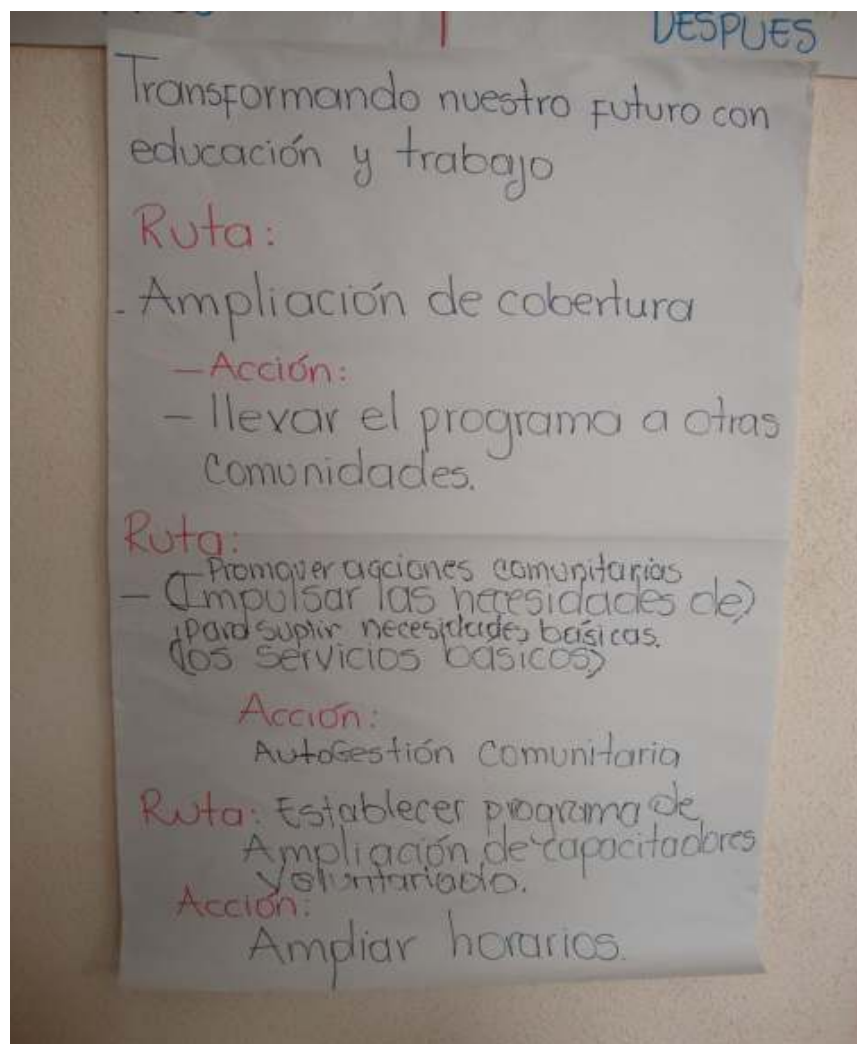 DESPUES
Transformando nuestro futuro con
educación y trabajo
Ruta:
- Ampliación de cobertura
- Acción:
- llevar el programa a otras
comunidades.
Ruta:
Promover acciones comunitarias
- (Impulsar las necesidades de)
para suplir necesidades basicas.
(los servicios basicos)
Acción:
AutoGestión comunitaria
Ruta: Establecer programa de
Ampliación de capacitadores
Voluntariado.
Acción:
Ampliar horarios.